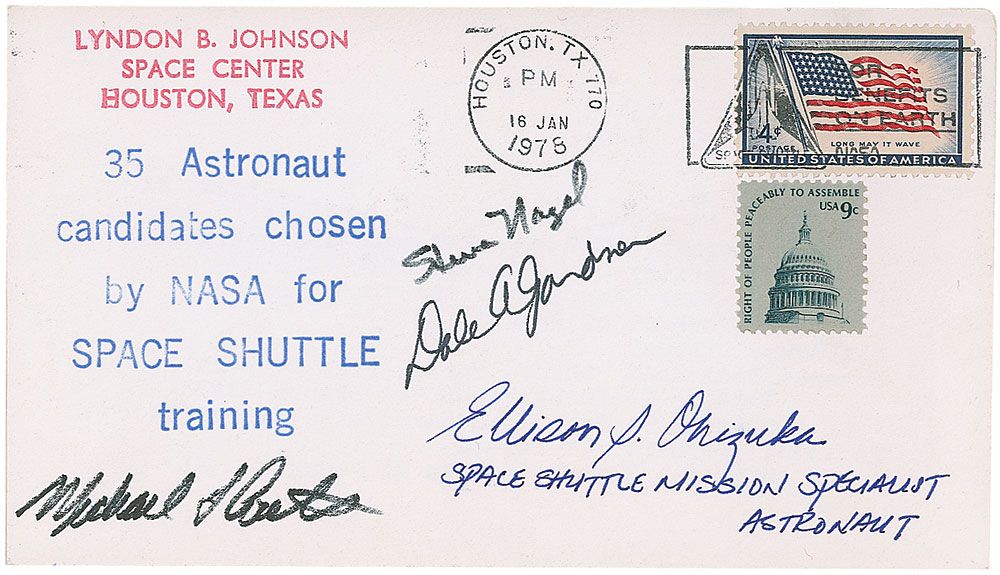 LYNDON B. JOHNSON
SPACE CENTER
HOUSTON, TEXAS
35 Astronaut
candidates chosen
by NASA for
SPACE SHUTTLE
training
HOUSTON, TX 770
PM
16 JAN
1978
BENEFITS
ON EARTH
4¢
LONG MAY IT WAVE
UNITED STATES OF AMERICA
RIGHT OF PEOPLE PEACEABLY TO ASSEMBLE
USA 9c
Steve Nagel
Dale A Gardner
Ellison S. Onizuka
SPACE SHUTTLE MISSION SPECIALIST
ASTRONAUT
Michael L Coats